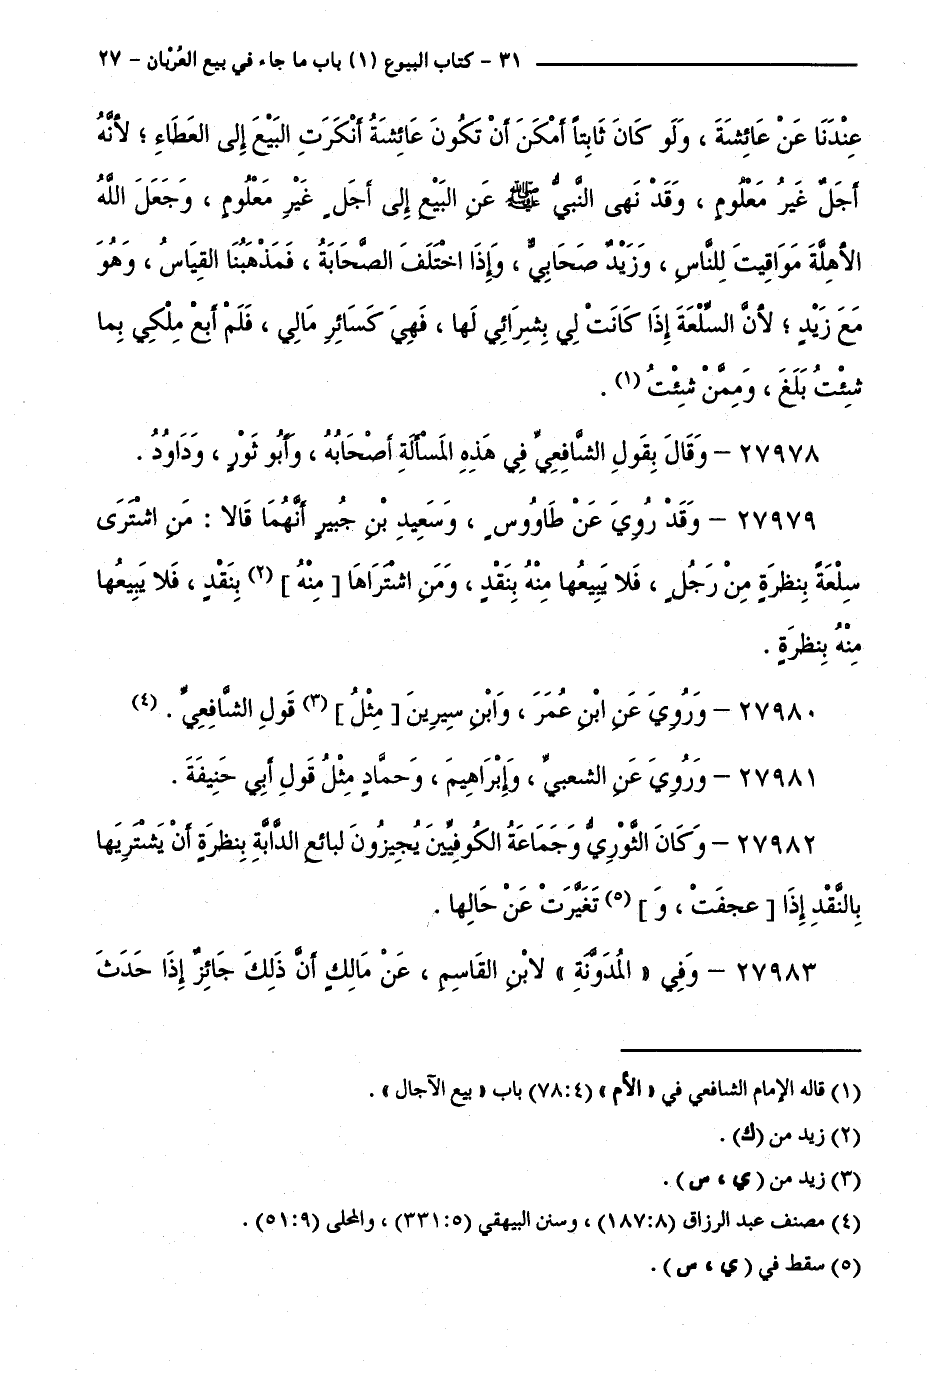 ٣١ - كتاب البيوع (١) باب ما جاء في بيع العُرْبان - ٢٧
عِنْدَنَا عَنْ عَائِشَةَ ، وَلَو كَانَ ثَابِتاً أَمْكَنَ أَنْ تَكُونَ عَائِشَةُ أَنْكَرَتِ البَيْعَ إِلى العَطَاءِ ؛ لأَنَّهُ
أَجَلٌ غَيرُ مَعْلُومٍ ، وَقَدْ نَهى النَّبيُّ ﷺ عَنِ البَيْعِ إِلى أَجَلٍ غَيْرِ مَعْلُومٍ ، وَجَعَلَ اللَّهُ
الأهِلَّةَ مَوَاقِيتَ لِلنَّاسِ ، وَزَيْدٌ صَحَابِيٌّ ، وَإِذَا اخْتَلَفَ الصَّحَابَةُ ، فَمَذْهَبُنَا القِيَاسُ ، وَهُوَ
مَعَ زَيْدٍ ؛ لأَنَّ السِّلْعَةَ إِذَا كَانَتْ لِي بِشِرَائِي لَها ، فَهِيَ كَسَائِرِ مَالِي ، فَلَمْ أَبعْ مِلْكِي بِما
شِئْتُ بَلَغَ ، وَمِمَّنْ شِئْتُ (١) .
٢٧٩٧٨ - وَقَالَ بِقَولِ الشَّافِعِيِّ فِي هَذِهِ المَسْأَلَةِ أَصْحَابُهُ ، وَأَبُو ثَوْرٍ ، وَدَاوُدُ .
٢٧٩٧٩ - وَقَدْ رُوِيَ عَنْ طَاوُوسٍ ، وَسَعِيدِ بْنِ جُبيرٍ أَنَّهُمَا قَالا : مَنِ اشْتَرَى
سِلْعَةً بِنظرَةٍ مِنْ رَجُلٍ ، فَلا يَبِيعُها مِنْهُ بِنَقْدٍ ، وَمَنِ اشْتَرَاهَا [ مِنْهُ ] (٢) بِنَقْدٍ ، فَلا يَبِيعُها
مِنْهُ بِنظرَةٍ .
٢٧٩٨٠ - وَرُوِيَ عَنِ ابْنِ عُمَرَ ، وَابْنِ سِيرِينَ [ مِثْلُ ] (٣) قَولِ الشَّافِعِيِّ . (٤)
٢٧٩٨١ - وَرُوِيَ عَنِ الشعبيِّ ، وَإِبْرَاهِيمَ ، وَحمَّادٍ مِثْلُ قَولِ أبي حَنِيفَةَ .
٢٧٩٨٢ - وَكَانَ الثَّوْرِيُّ وَجَمَاعَةُ الكُوفِيِّينَ يُجِيزُونَ لبائعِ الدَّابَّةِ بِنظرَةٍ أَنْ يَشْتَرِيَها
بِالنَّقْدِ إِذَا [ عجفَتْ ، وَ ] (٥) تَغَيَّرَتْ عَنْ حَالِها .
٢٧٩٨٣ - وَفِي « الْمُدَوَّنَةِ » لابْنِ القَاسِمِ ، عَنْ مَالِكٍ أَنَّ ذَلِكَ جَائِزٌ إِذَا حَدَثَ
(١) قاله الإمام الشافعي في « الأم » (٤ : ٧٨) باب « بيع الآجال » .
(٢) زيد من (ك) .
(٣) زيد من ( ي ، س ) .
(٤) مصنف عبد الرزاق (٨ : ١٨٧) ، وسنن البيهقي (٥ : ٣٣١) ، والمحلى (٩ : ٥١) .
(٥) سقط في ( ي ، س ) .